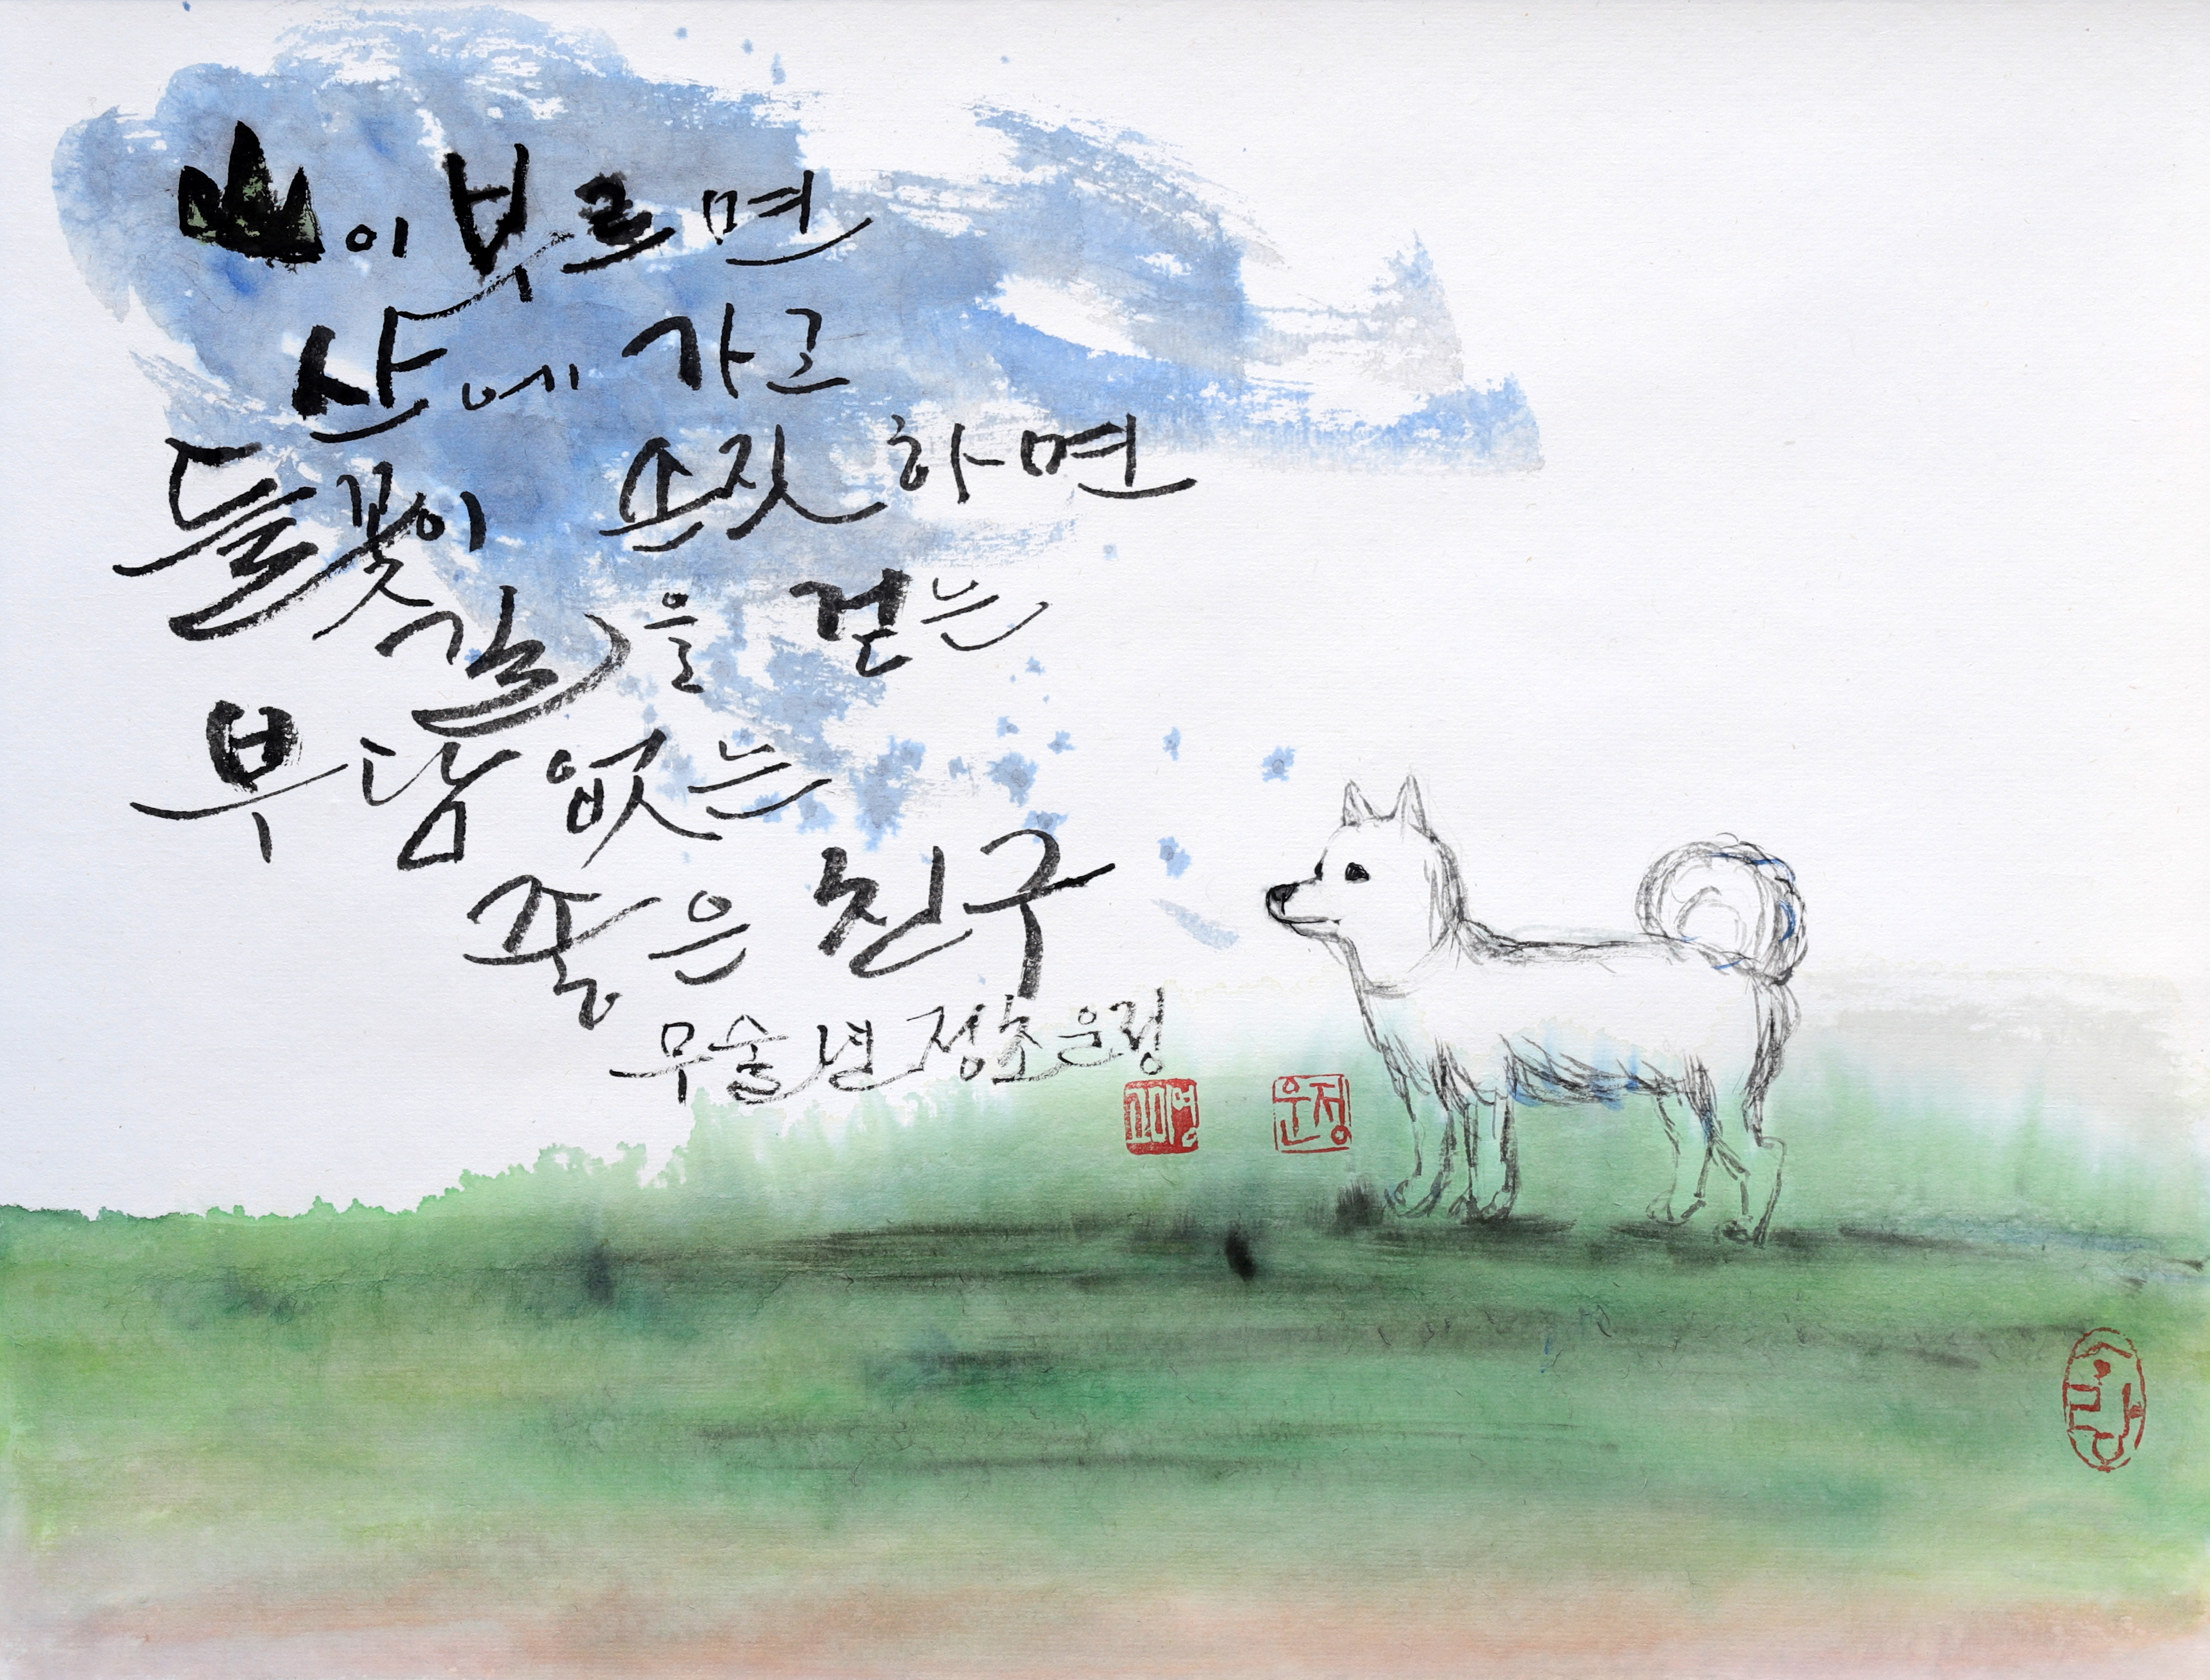 山이 부르면
산에 가고
들꽃이 손짓하면
길을 걷는
부담없는
좋은 친구
무술년 정초 운정
운정